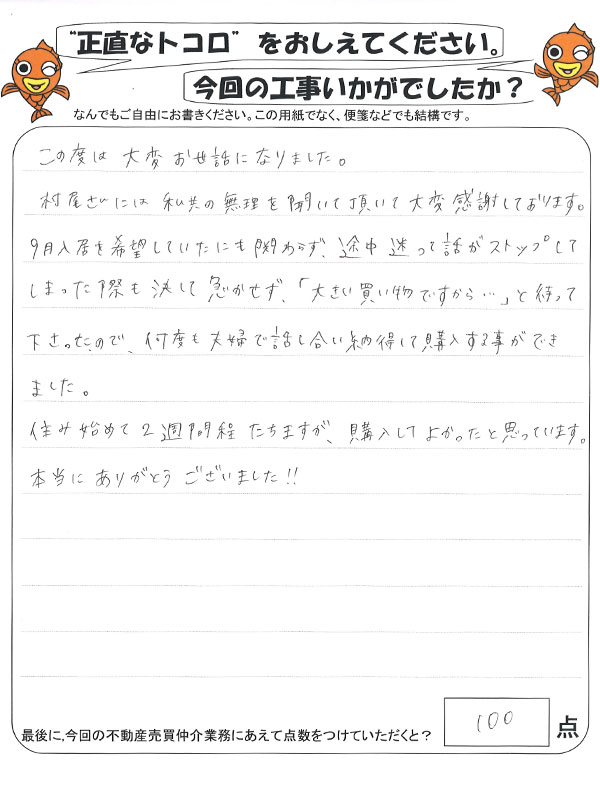 "正直なトコロ"をおしえてください。
今回の工事いかがでしたか？
なんでもご自由にお書きください。この用紙でなく、便箋などでも結構です。
この度は 大変 お世話になりました。
村尾さんには 私共の無理を聞いて頂いて 大変 感謝しております。
9月入居を希望していたにも関わらず、途中 迷って話がストップして
しまった際も決して急かせず、「大きい買い物ですから…」と待って
下さったので、何度も夫婦で話し合い納得して購入する事ができ
ました。
住み始めて2週間程たちますが、購入してよかったと思っています。
本当に ありがとう ございました!!
最後に、今回の不動産売買仲介業務にあえて点数をつけていただくと？ 100 点